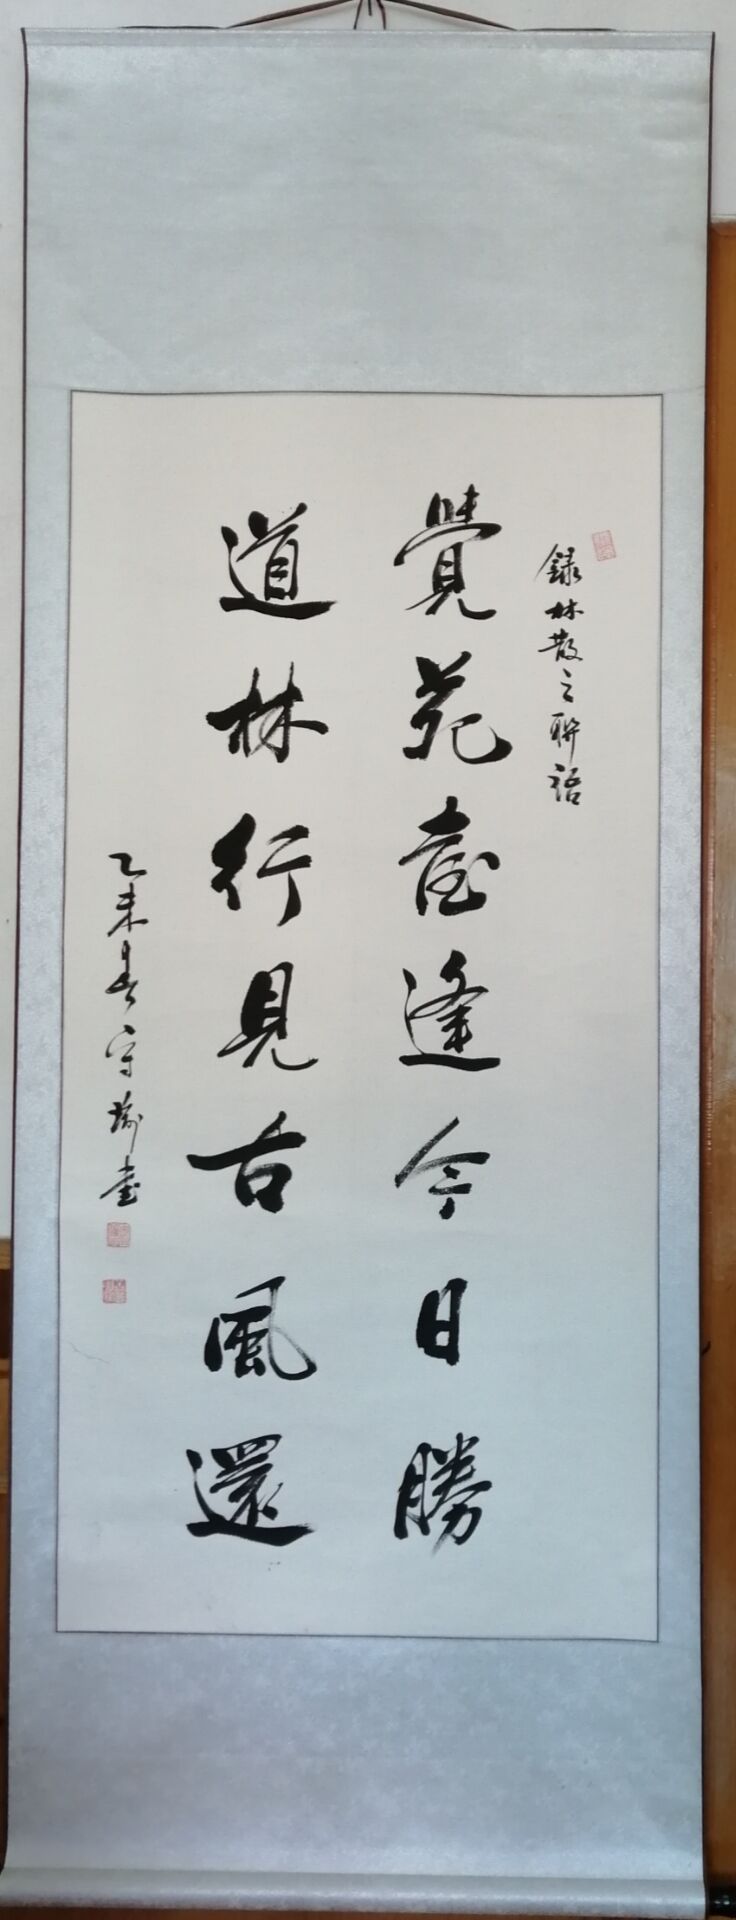 錄林散之聯語
覺苑喜逢今日勝
道林行見古風還
乙未春守書